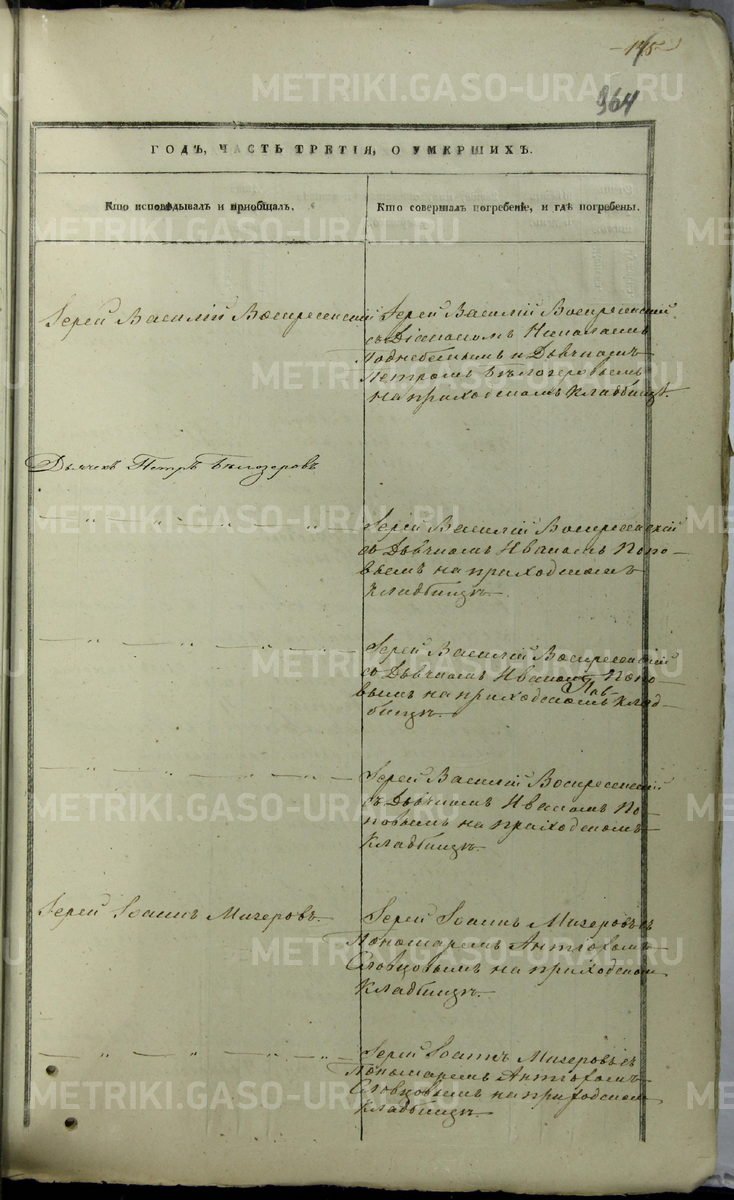 175
364
METRIKI.GASO-URAL.RU
ГОДЪ, ЧАСТЬ ТРЕТІЯ, О УМЕРШИХЪ.
Кто исповѣдывалъ и приобщалъ.
Кто совершалъ погребеніе, и гдѣ погребены.
Іерей Василій Воспресенскій
Іерей Василій Воскресенскій
съ Діакономъ Николаемъ
Поднебеснымъ и Дьячкомъ
Петромъ Бѣлозеровымъ
на приходскомъ кладбищѣ.
Дьячекъ Петръ Бѣлозеровъ
Іерей Василій Воскресенскій
съ Дьячкомъ Иваномъ Попо-
вымъ на приходскомъ
кладбищѣ.
Іерей Василій Воскресенскій
съ Дьячкомъ Иваномъ Попо-
вымъ на приходскомъ клад-
бищѣ.
Іерей Василій Воскресенскій
съ Дьячкомъ Иваномъ По-
повымъ на приходскомъ
кладбищѣ.
Іерей Іоаннъ Мизеровъ.
Іерей Іоаннъ Мизеровъ съ
Пономаремъ
Словцовымъ на приходском
кладбищѣ.
Іерей Іоаннъ Мизеровъ съ
Пономаремъ
Словцовымъ на приходском
кладбищѣ.